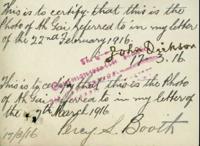 This is to certify that this is the
Photo of Ah Gin referred to in my letter
of the 22nd February 1916.
John Dickson
17 . 3. 16
This is to certify that this is the Photo
of Ah Gin referred to in my letter of
the 7th March 1916
Percy S. Booth
17/3/16